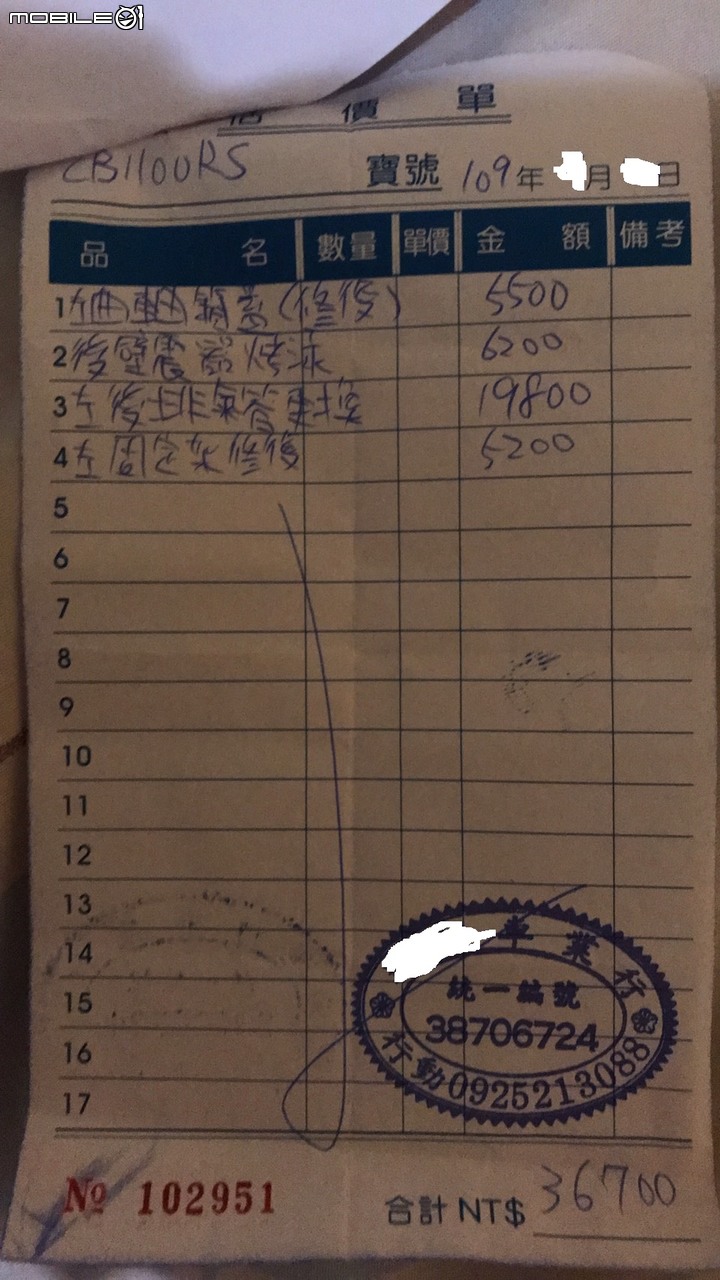 MOBILE01
估價單
CB1100RS 寶號 109年 月 日
品名 數量 單價 金額 備考
1 (修復) 5500
2 後避震器烤漆 6200
3 左後排氣管更換 19800
4 左固定架修復 5200
5
6
7
8
9
10
11
12
13
14
15
16
17
車業行
統一編號
38706724
行動0925213088
№ 102951 合計 NT$ 36700